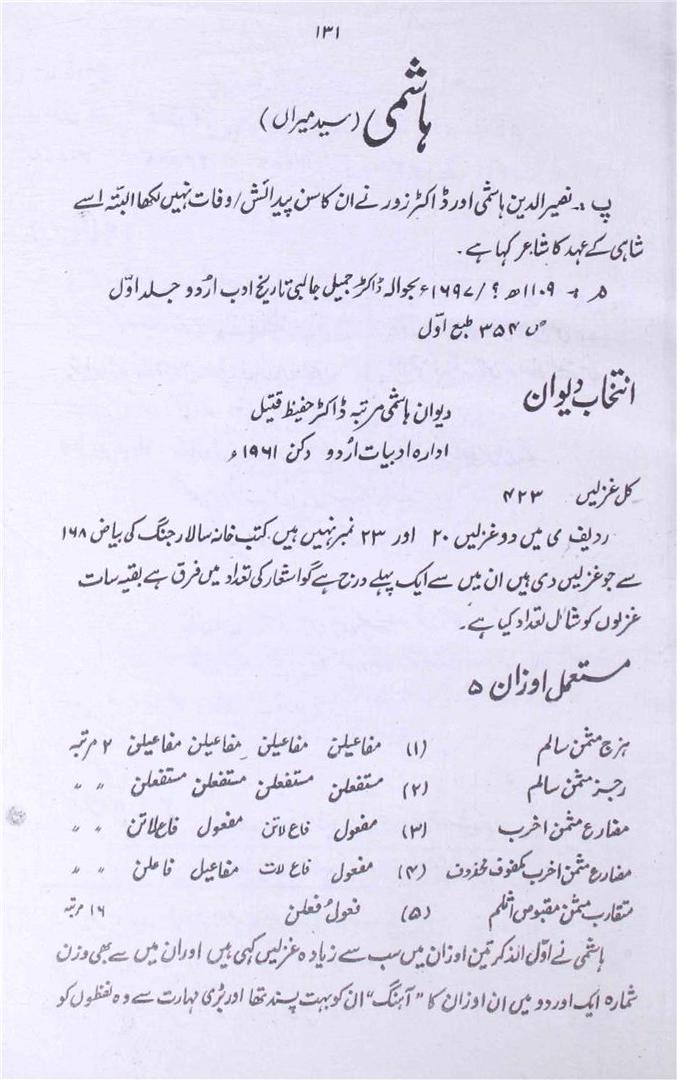 ۱۳۱
ہاشمی (سید میراں)
پ :۔ نصیر الدین ہاشمی اور ڈاکٹر زور نے ان کا سن پیدائش / وفات نہیں لکھا البتہ اسے
شاہی کے عہد کا شاعر کہا ہے۔
م :۔ ۱۱۰۹ھ ؟ / ۱۶۹۷ء بحوالہ ڈاکٹر جمیل جالبی تاریخ ادب اردو جلد اوّل
ص ۳۵۴ طبع اوّل
انتخاب دیوان
دیوان ہاشمی مرتبہ ڈاکٹر حفیظ قتیل
ادارہ ادبیات اُردو دکن ۱۹۶۱ء
کل غزلیں ۴۲۳
ردیف ی میں دو غزلیں ۲۰ اور ۲۳ نمبر نہیں ہیں۔ کتب خانہ سالار جنگ کی بیاض ۱۶۸
سے جو غزلیں دی ہیں ان میں سے ایک پہلے درج ہے گو اشعار کی تعداد میں فرق ہے بقیہ سات
غزلوں کو شامل تعداد کیا ہے۔
مستعمل اوزان ۵
ہزج مثمن سالم (۱) مفاعیلن مفاعیلن مفاعیلن مفاعیلن ۲ مرتبہ
رجز مثمن سالم (۲) مستفعلن مستفعلن مستفعلن مستفعلن 〃 〃
مضارع مثمن اخرب (۳) مفعول فاع لاتن مفعول فاع لاتن 〃 〃
مضارع مثمن اخرب مکفوف محذوف (۴) مفعول فاع لات مفاعیل فاعلن 〃 〃
متقارب مثمن مقبوض اثلم (۵) فعولُ فعلن ۱۶ مرتبہ
ہاشمی نے اوّل الذکر تین اوزان میں سب سے زیادہ غزلیں کہی ہیں اور ان میں سے بھی وزن
شمارہ ایک اور دو میں ان اوزان کا "آہنگ" ان کو بہت پسند تھا اور بڑی مہارت سے وہ لفظوں کو